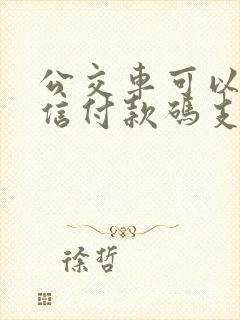 公交车可以
信付款码支
徐哲